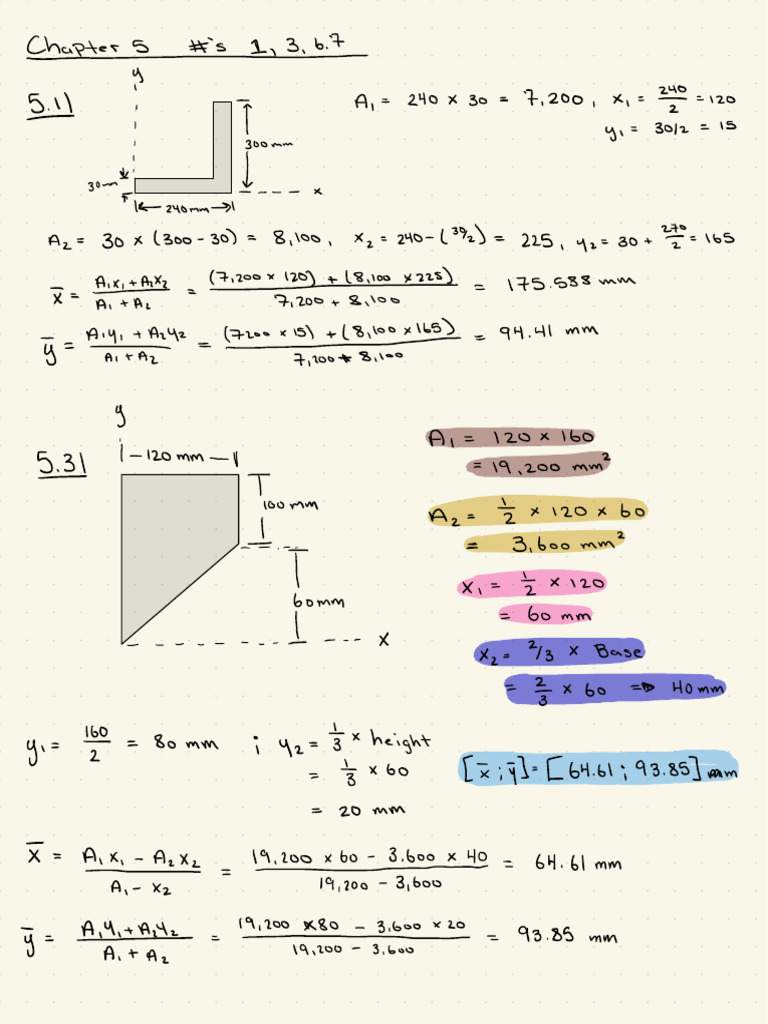 Chapter 5 #'s 1, 3, 6.7
5.1)
y
300 mm
30mm
240mm
x
A₁ = 240 × 30 = 7,200, x₁ = 240/2 = 120
y₁ = 30/2 = 15
A₂ = 30 × (300 - 30) = 8,100, x₂ = 240-(30/2) = 225, y₂ = 30 + 270/2 = 165
x̄ = (A₁x₁ + A₂x₂)/(A₁ + A₂) = ((7,200 × 120) + (8,100 × 225))/(7,200 + 8,100) = 175.588 mm
ȳ = (A₁y₁ + A₂y₂)/(A₁ + A₂) = ((7200 × 15) + (8,100 × 165))/(7,200 + 8,100) = 94.41 mm
5.3)
y
120 mm
100 mm
60mm
x
A₁ = 120 × 160
= 19,200 mm²
A₂ = 1/2 × 120 × 60
= 3,600 mm²
x₁ = 1/2 × 120
= 60 mm
x₂ = 2/3 × Base
= 2/3 × 60 => 40mm
y₁ = 160/2 = 80 mm ; y₂ = 1/3 × height
= 1/3 × 60
= 20 mm
[x̄ ; ȳ] = [64.61 ; 93.85] mm
x̄ = (A₁x₁ - A₂x₂)/(A₁ - x₂) = (19,200 × 60 - 3.600 × 40)/(19,200 - 3,600) = 64.61 mm
ȳ = (A₁y₁ + A₂y₂)/(A₁ + A₂) = (19,200 × 80 - 3,600 × 20)/(19,200 - 3.600) = 93.85 mm